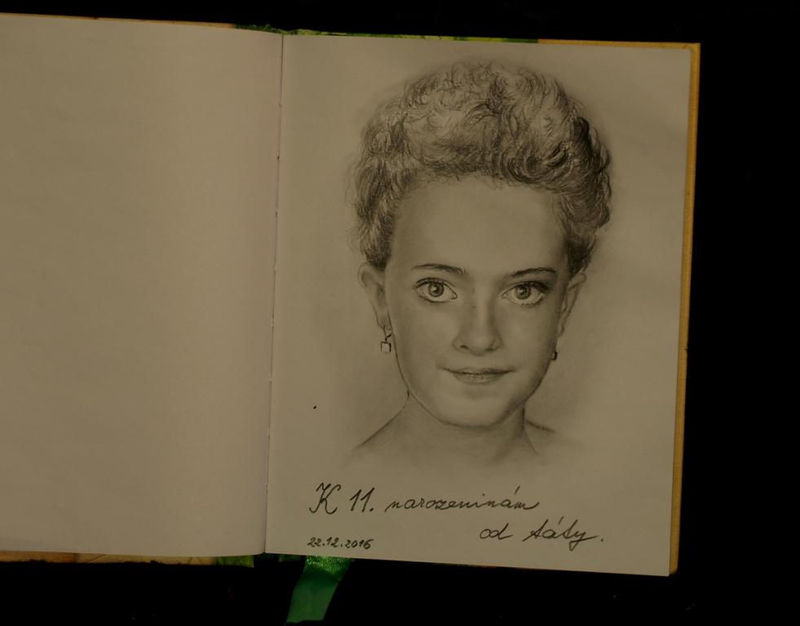 K 11. narozeninám
od táty.
22.12.2016